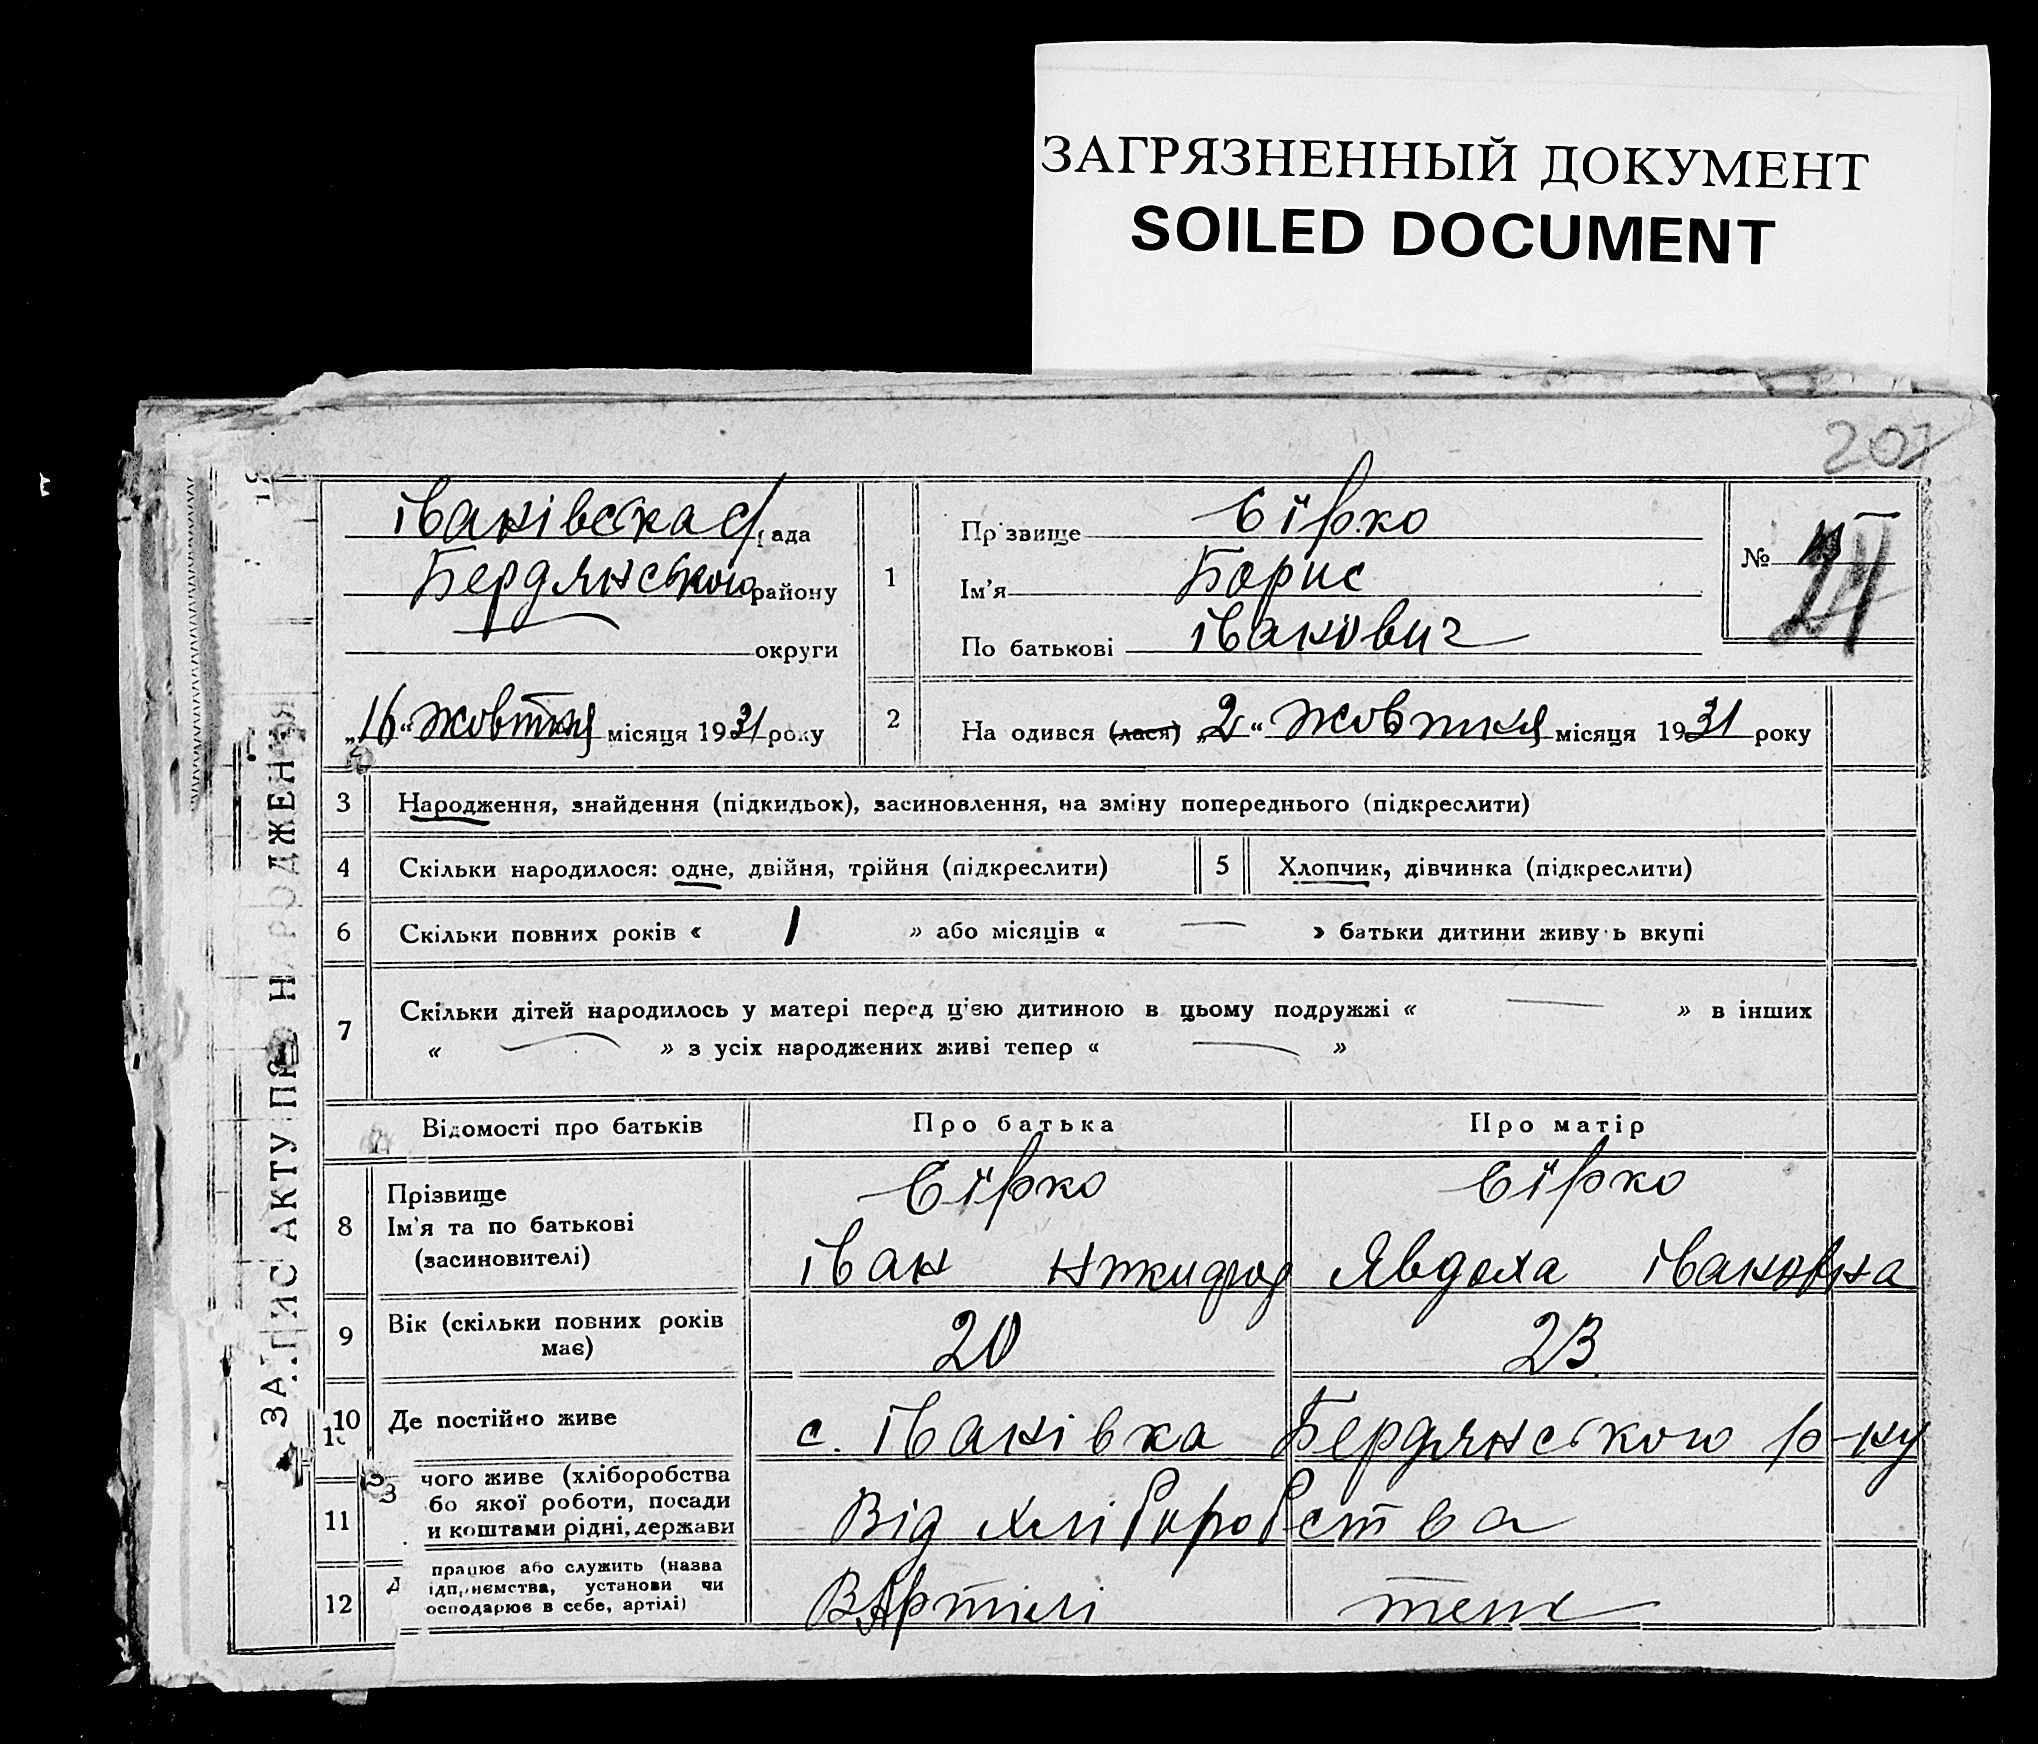 ЗАГРЯЗНЕННЫЙ ДОКУМЕНТ
SOILED DOCUMENT
ЗАПИС АКТУ ПРО НАРОДЖЕННЯ
Іванівська с/рада
Бердянського району
округи
„16“ жовтня місяця 1931 року
1
Прізвище Сірко
Ім'я Борис
По батькові Іванович
№
2
На одився (лася) „2“ жовтня місяця 1931 року
3 Народження, знайдення (підкидьок), засиновлення, на зміну попереднього (підкреслити)
4 Скільки народилося: одне, двійня, трійня (підкреслити) 5 Хлопчик, дівчинка (підкреслити)
6 Скільки повних років « 1 » або місяців « — » батьки дитини живу ь вкупі
7 Скільки дітей народилось у матері перед цією дитиною в цьому подружжі « — » в інших
« — » з усіх народжених живі тепер « — »
Відомості про батьків Про батька Про матір
8 Прізвище Сірко Сірко
Ім'я та по батькові
(засиновителі) Іван Явдоха Івановна
9 Вік (скільки повних років має) 20 23
10 Де постійно живе с. Іванівка Бердянського р-ну
11 чого живе (хліборобства
бо якої роботи, посади
и коштами рідні, держави Від хліборобства
12 працює або служить (назва
ідприємства, установи чи
осподарює в себе, артілі) В Артілі теж